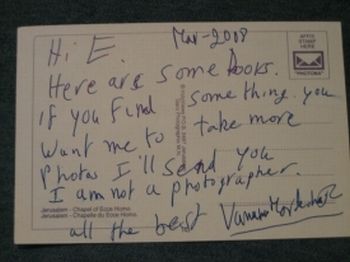 Mar-2008
Hi E.
AFFIX
STAMP
HERE
"PHOTONA"
Here are some books.
if you find something you
want me to take more
Photos I'll send you
I am not a photographer.
Jerusalem - Chapel of Ecce Homo
Jerusalem - Chapelle du Ecce Homo.
all the best